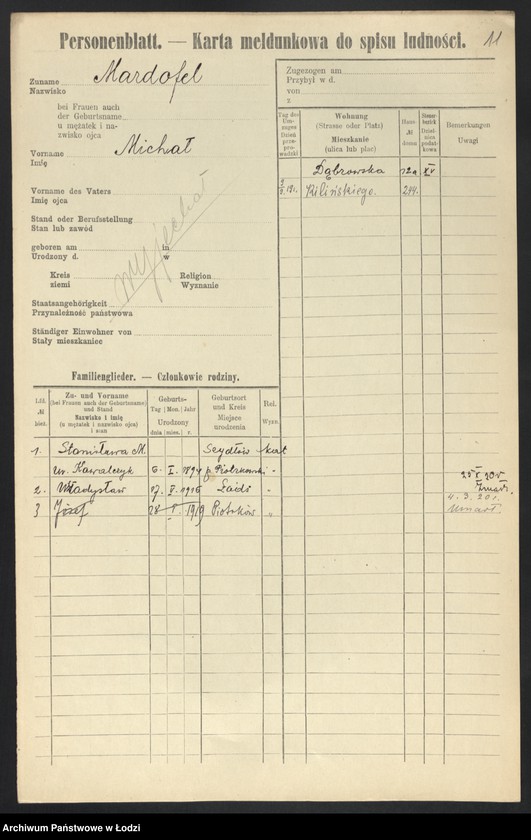 Personenblatt. — Karta meldunkowa do spisu ludności.
11
Zuname Mardofel
Nazwisko
bei Frauen auch
der Geburtsname
u mężatek i na-
zwisko ojca
Vorname Michał
Imię
Vorname des Vaters
Imię ojca
Stand oder Berufsstellung
Stan lub zawód
geboren am in
Urodzony d. w
Kreis Religion
ziemi Wyznanie
Staatsangehörigkeit
Przynależność państwowa
Ständiger Einwohner von
Stały mieszkaniec
wyjechał
Zugezogen am
Przybył w d.
von
z
Tag des Um-zuges Dzień prze-pro-wadzki
Wohnung (Strasse oder Platz) Mieszkanie (ulica lub plac)
Haus- № domu
Steuer-bezirk Dziel-nica podat-kowa
Bemerkungen Uwagi
Dąbrowska 12a XV
Kilińskiego. 244.
Familienglieder. — Członkowie rodziny.
Lfd. № bież.
Zu- und Vorname (bei Frauen auch der Geburtsname) und Stand Nazwisko i imię (u mężatek i nazwisko ojca) i stan
Geburts- Tag | Mon. | Jahr Urodzony dnia | mies. | r.
Geburtsort und Kreis Miejsce urodzenia
Rel. Wyzn.
1. Stanisława M. kat
ur. Kowalczyk 6. I. 1894 p. Piotrkowski "
2. Władysław 17. V. 1916 Łódź "
4. 3. 20 r.
3 Józef 1919 Piotrków "
umarł.
Archiwum Państwowe w Łodzi